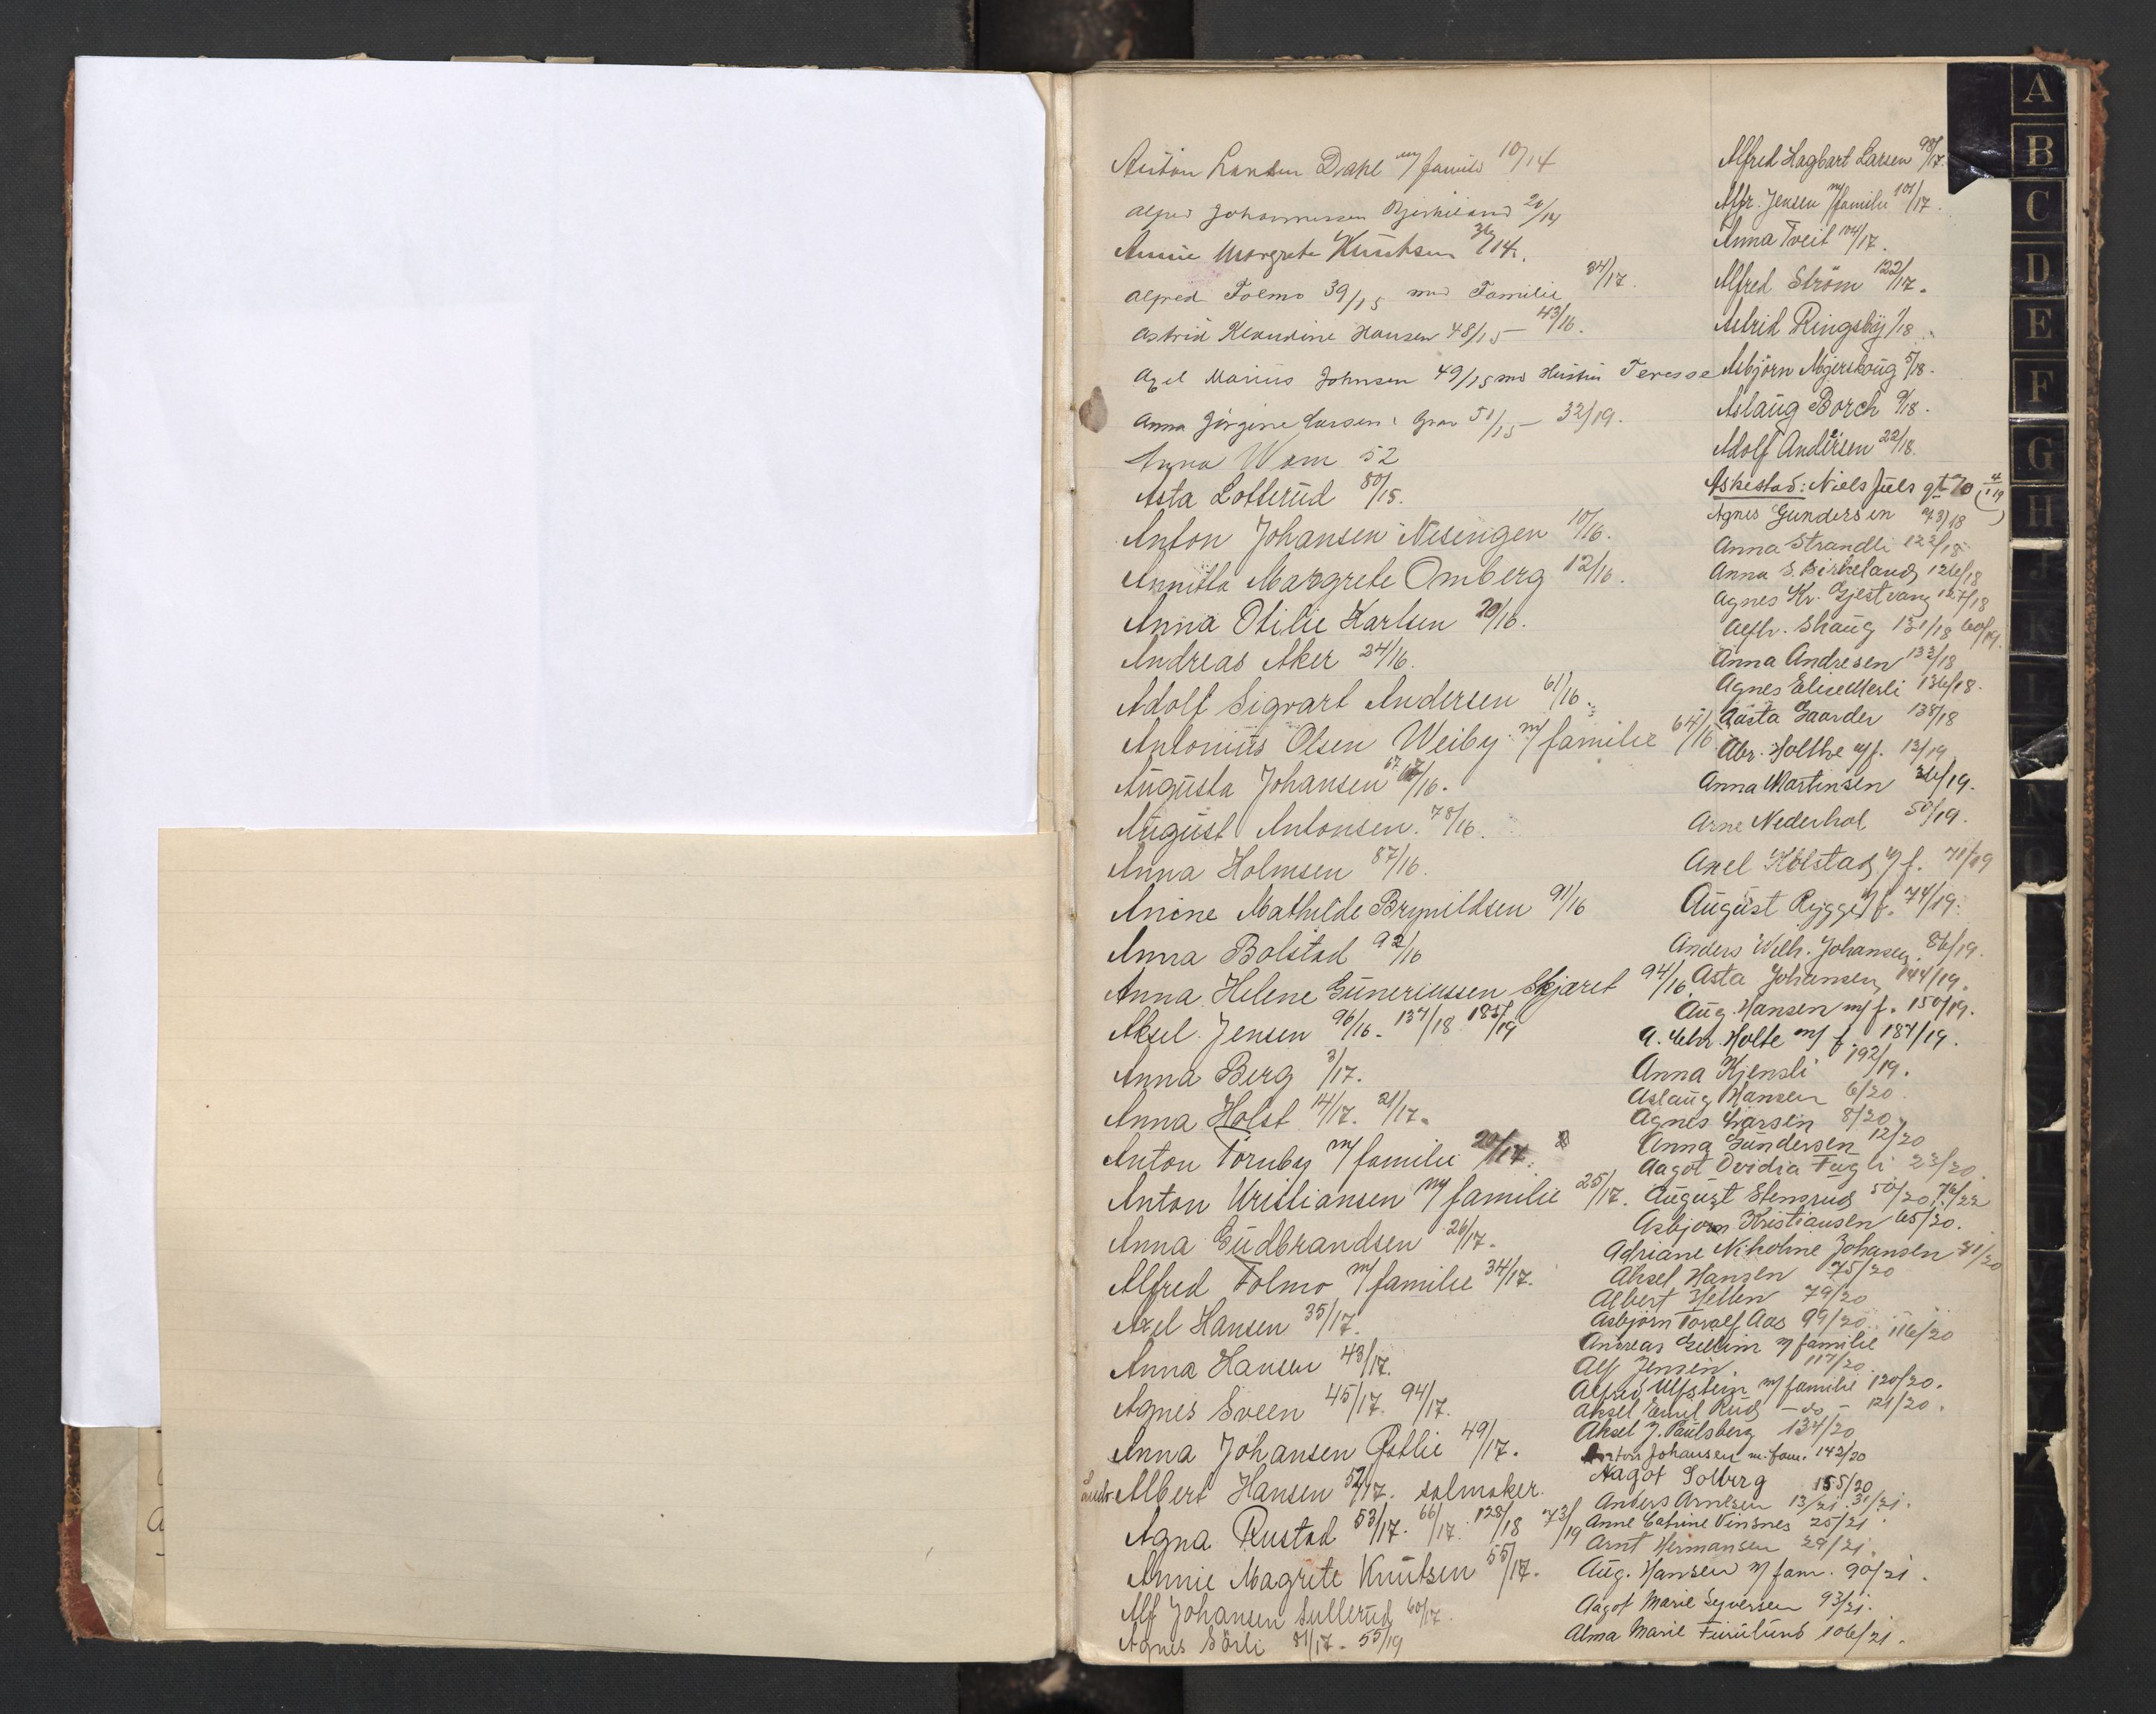 Anton Larsen Dahl m/ famili 10/14
Alfred Johannessen Bjerkeland 20/14
Annie Margrete Knutsen 36/14.
Alfred Tolmo 39/15 med Familie 34/17.
Astrid Klaudine Hansen 48/15 – 43/16.
Axel Marius Johnsen 49/15 md Hustru Terese
Anna Jörgine Larsen: Gran 51/15 – 32/19.
Anna Wam 52
Asta Lotterud 80/15.
Anton Johansen Nesengen 10/16.
Annitta Margrete Omberg 12/16.
Anna Otilie Karlsen 20/16.
Andreas Aker 24/16.
Adolf Sigvart Andersen 61/16.
Antonius Olsen Weiby m/ familie 64/16
Augusta Johansen 67/16.
August Antonsen. 78/16.
Anna Holmsen 87/16.
Anine Mathilde Brynildsen 91/16
Anna Bolstad 92/16
Anna Helene Guneriussen Skjæret 94/16.
Aksel Jensen 96/16 – 137/18 185/19
Anna Berg 3/17.
Anna Holst 14/17. 21/17.
Anton Tornby m/ familie 20/17.
Anton Kristiansen m/ familie 25/17.
Anna Gudbrandsen 26/17.
Alfred Tolmo m/ familie 34/17.
Axel Hansen 35/17.
Anna Hansen 43/17.
Agnes Sveen 45/17. 94/17.
Anna Johansen Østlie 49/17.
Albert Hansen 52/17. salmaker.
Agna Rustad 53/17. 66/17. 128/18 73/19
Annie Magrete Knutsen 55/17.
Alf Johansen Sullerud 60/17.
Agnes Sörli 81/17 – 55/19
Alfred Hagbart Larsen 98/17.
Alfr. Jensen m/familie 101/17.
Anna Tveit 104/17.
Alfred Ström 122/17.
Astrid Ringsby 1/18.
Asbjörn Mjerskoug 5/18.
Aslaug Borch 9/18.
Adolf Andersen 22/18.
Askestad: Niels Juels gt 70
Agnes Gundersen 93/18
Anna Strandli 122/18
Anna S. Birkeland 126/18
Agnes Kr. Gjestvang 127/18
Alfh. Skaug 131/18 60/19.
Anna Andresen 132/18
Agnes Elise Merli 136/18.
Aasta Gaarder 138/18
Abr. Holthe m/f. 13/19
Anna Martinsen 36/19.
Arne Nederhol 50/19.
Axel Kolstad m/f. 71/19
August Rygge m/f. 74/19.
Anders Wilh. Johansen 86/19.
Asta Johansen 144/19.
Aug. Hansen m/f. 150/19.
A. Chr. Holte m/ f. 187/19.
Anna Kjensli 192/19.
Aslaug Hansen 6/20.
Agnes Larsen 8/20.
Anna Gundersen 12/20
Aagot Ovidia Fugli 23/20.
August Stensrud 50/20. 76/22
Asbjörn Kristiansen 65/20.
Adriane Nikoline Johansen 71/20
Aksel Hansen 75/20
Albert Hellen 79/20
Asbjörn Toralf Aas 99/20.
Andreas Gellein m/ familie 116/20
Alf Jensen. 117/20
Alfred Ulfstein m/ familie 120/20.
Aksel Emil Ruud – do – 121/20.
Aksel J. Paulsberg 134/20
Anton Johansen m. fam. 142/20
Aagot Solberg 155/20
Anders Arnesen 13/21. 31/21.
Anne Catrine Vinsnes 25/21
Arnt Hermansen 29/21.
Aug. Hansen m/ fam. 90/21.
Aagot Marie Syversen 93/21.
Alma Marie Furulund 106/21.
A
B
C
D
E
F
G
H
J
K
L
N
O